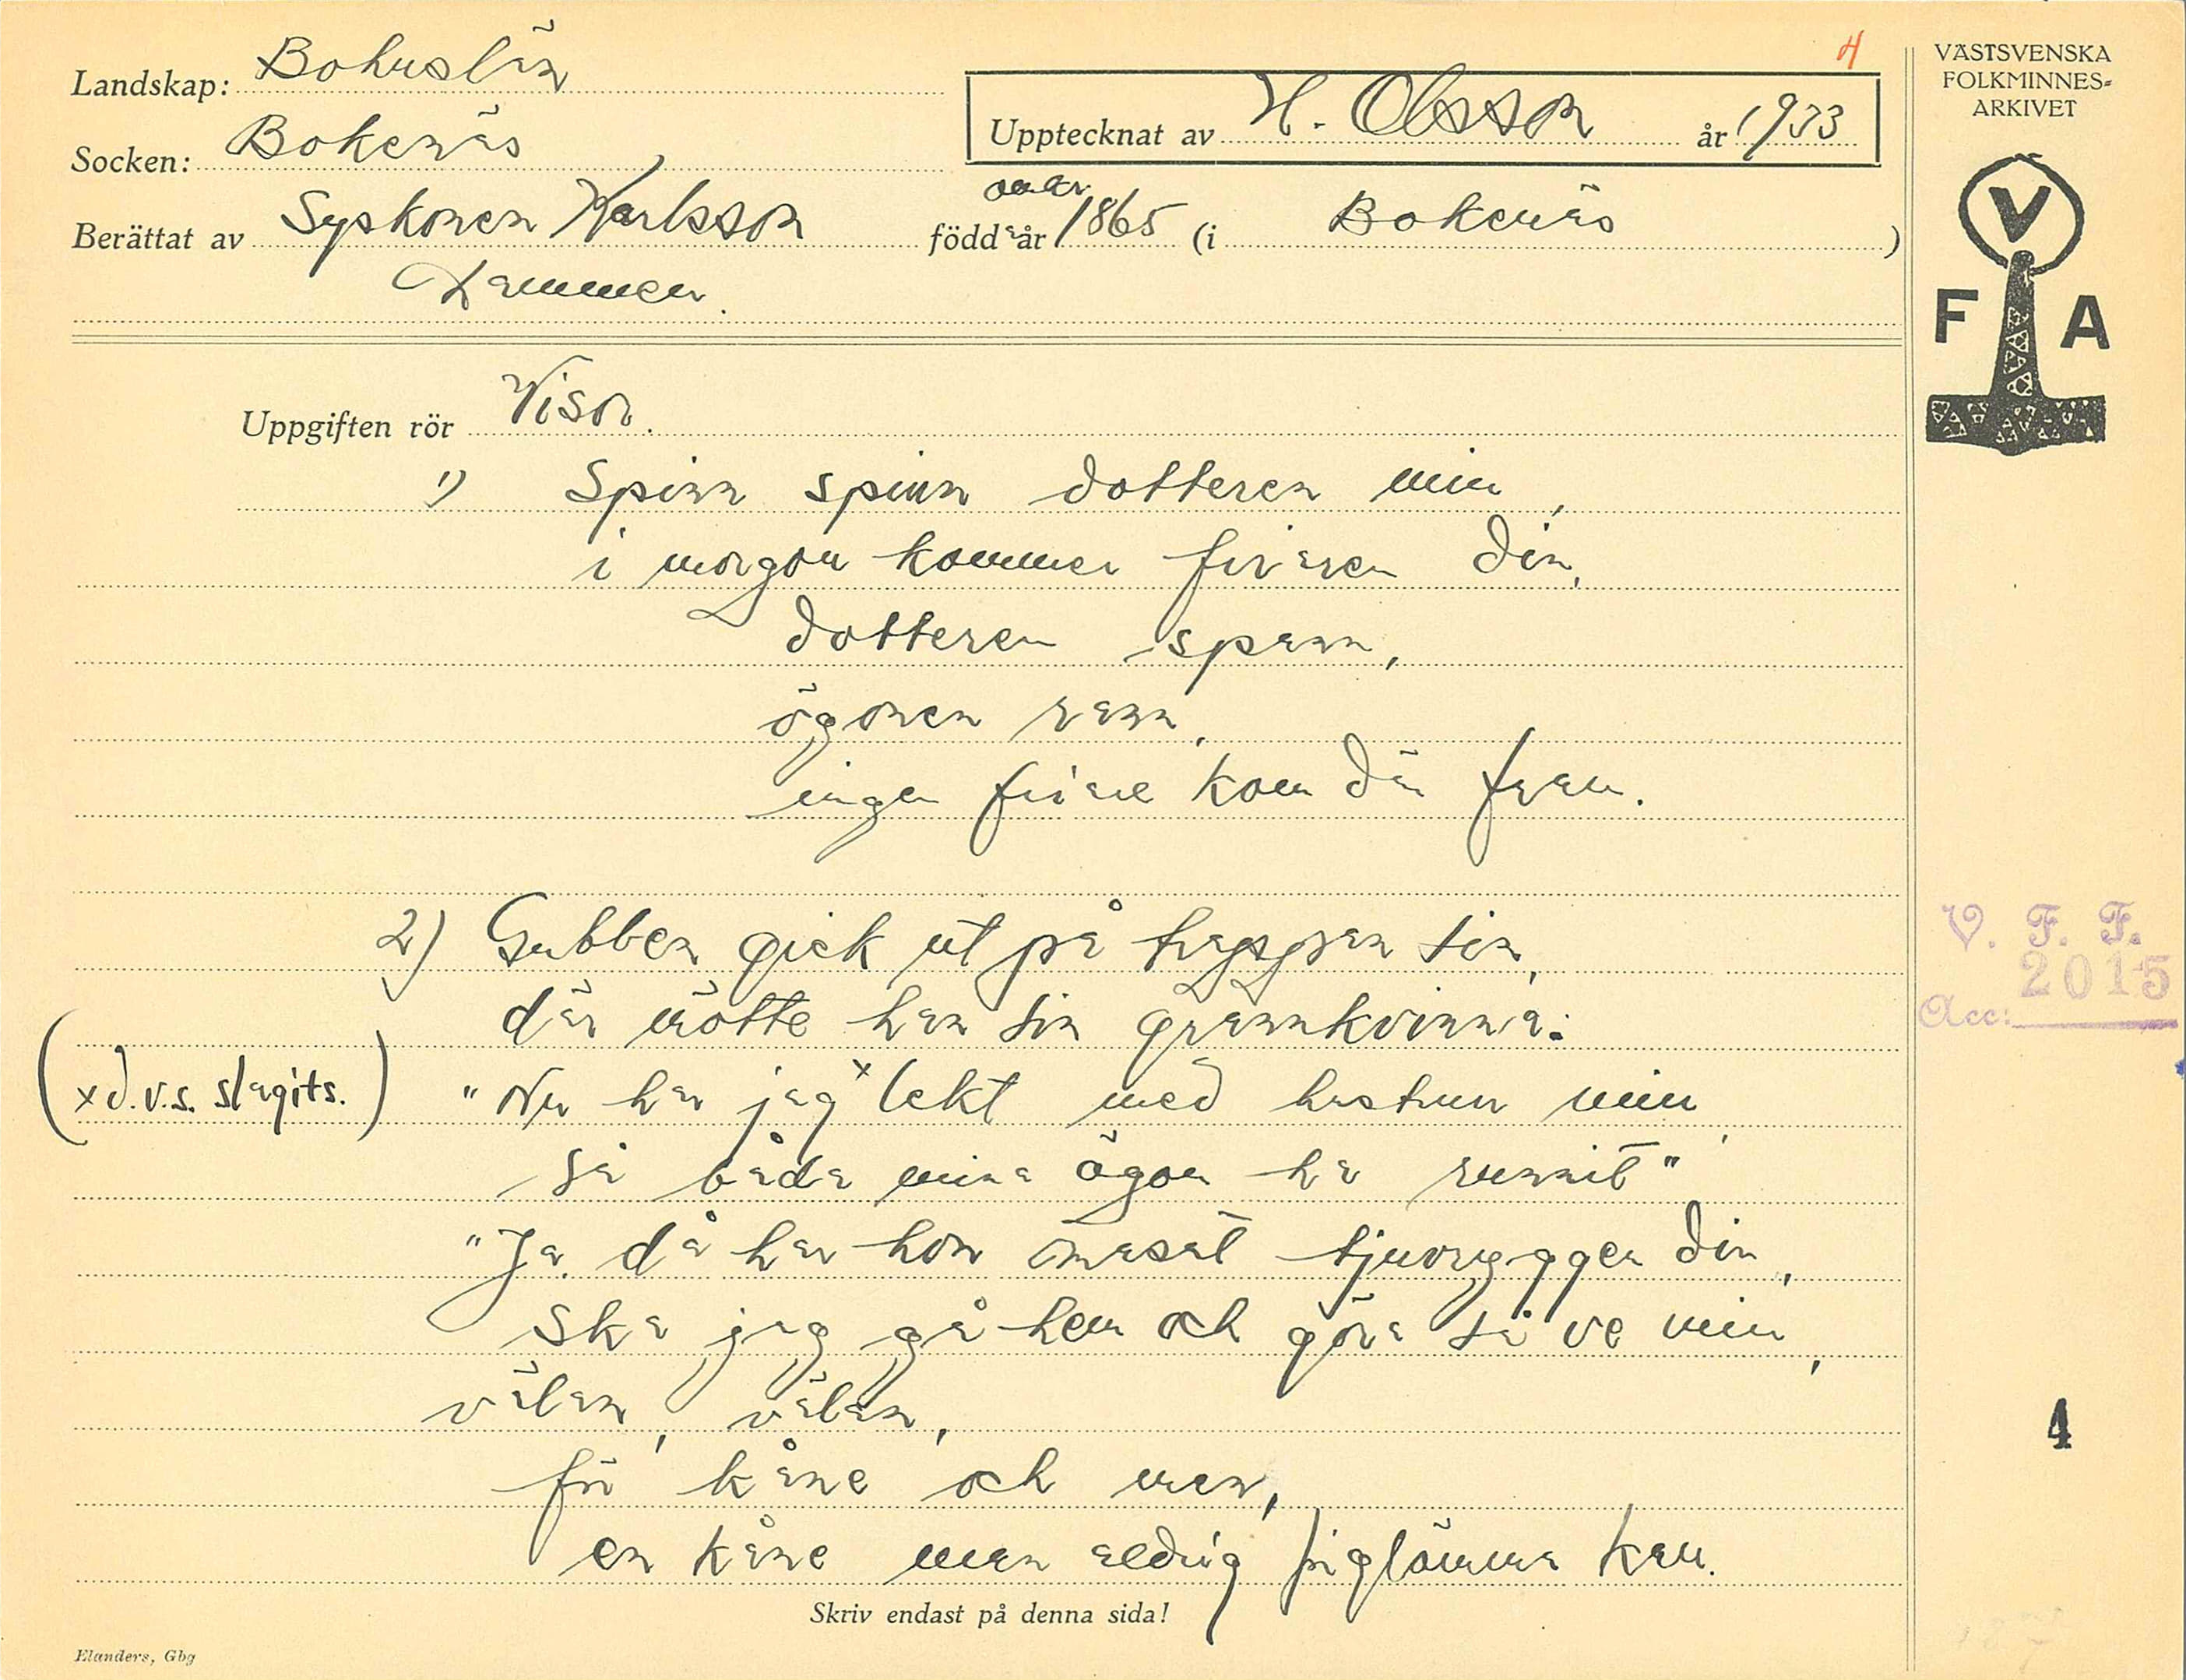 4
VÄSTSVENSKA
FOLKMINNES-
ARKIVET
Landskap: Bohuslän
Upptecknat av H. Olsson år 1933
Socken: Bokenäs
Berättat av Syskonen Karlsson födda år omkr. 1865 (i Bokenäs)
V
F A
Uppgiften rör Visor.
1) Spinn spinn dotteren min,
i morgon kommer friaren din,
dotteren spann,
ögonen rann,
ingen friare kom där fram.
2) Gubben gick ut på trappan sin,
där mötte han sin grannkvinna:
(x d.v.s. slagits.) "Nu har jag x lekt med hustrun min,
så båda mina ögon ha runnit"
"Ja då har hon mast tjuvryggen din,
ska jag gå hem och göra så ve min,
välan, välan,
för kåne och man,
en kåne man aldrig förglömma kan.
V. F. F.
2015
Acc:
4
Skriv endast på denna sida!
Elanders, Gbg